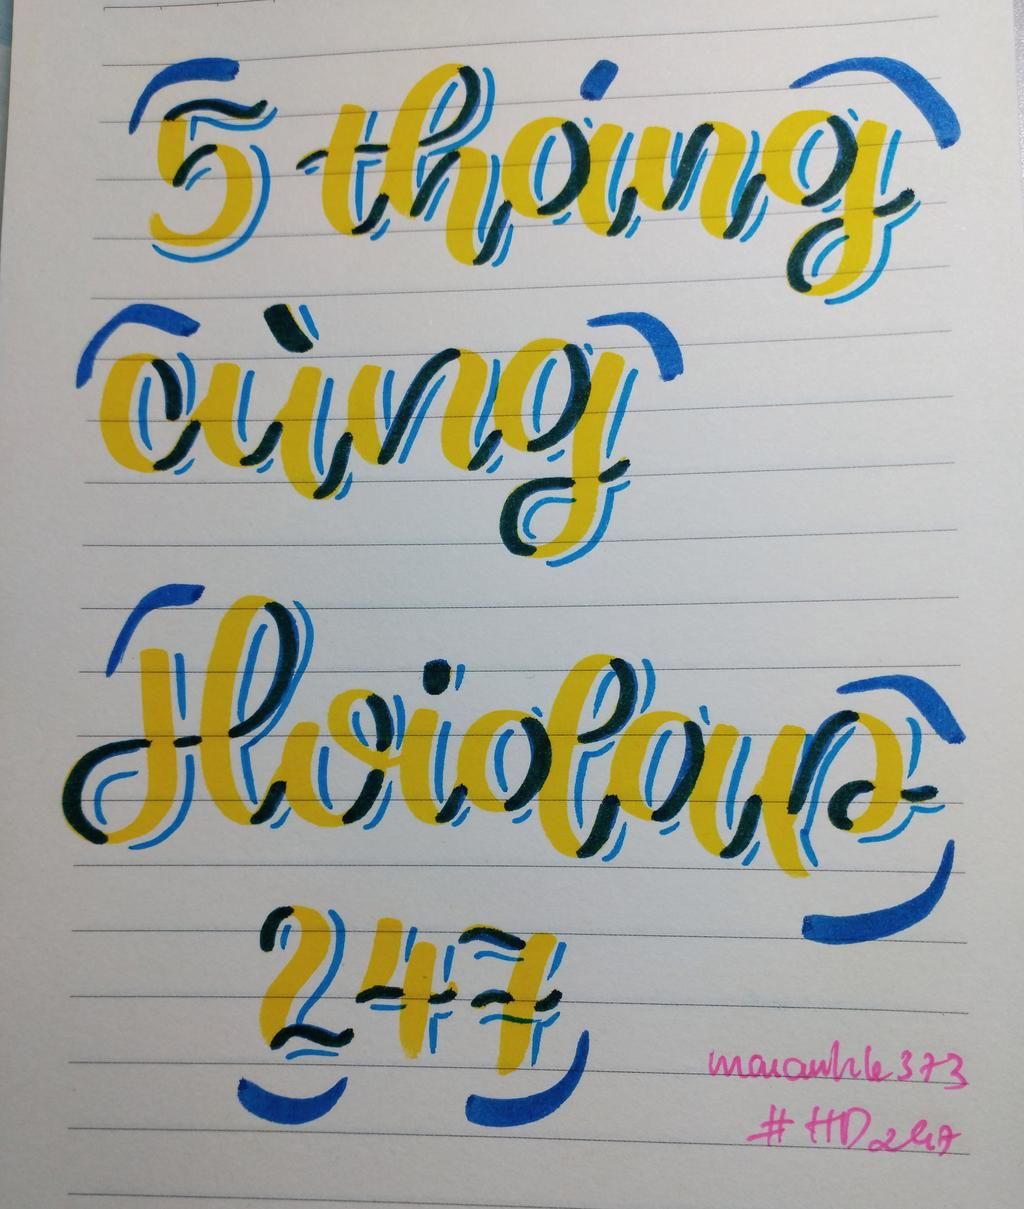 5 tháng
cùng
Hoidap
247
maianhle373
#HD247